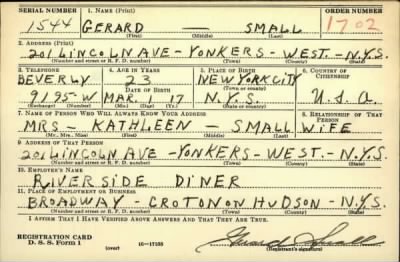 SERIAL NUMBER 1. NAME (Print) ORDER NUMBER
1544 GERARD — SMALL 1702
(First) (Middle) (Last)
2. ADDRESS (Print)
201 LINCOLN AVE - YONKERS - WEST. - N.Y.S.
(Number and street or R. F. D. number) (Town) (County) (State)
3. TELEPHONE 4. AGE IN YEARS 5. PLACE OF BIRTH 6. COUNTRY OF CITIZENSHIP
BEVERLY 23 NEW YORK CITY
DATE OF BIRTH (Town or county)
9195-W MAR. 17 N.Y.S. U.S.A.
(Exchange) (Number) (Mo.) (Day) (Yr.) (State or country)
7. NAME OF PERSON WHO WILL ALWAYS KNOW YOUR ADDRESS 8. RELATIONSHIP OF THAT PERSON
MRS - KATHLEEN - SMALL WIFE
(Mr., Mrs., Miss) (First) (Middle) (Last)
9. ADDRESS OF THAT PERSON
201 LINCOLN AVE - YONKERS - WEST. - N.Y.S.
(Number and street or R. F. D. number) (Town) (County) (State)
10. EMPLOYER'S NAME
RIVERSIDE DINER
11. PLACE OF EMPLOYMENT OR BUSINESS
BROADWAY - CROTON ON HUDSON - N.Y.S.
(Number and street or R. F. D. number) (Town) (County) (State)
I AFFIRM THAT I HAVE VERIFIED ABOVE ANSWERS AND THAT THEY ARE TRUE.
REGISTRATION CARD
D. S. S. Form 1 (over) 16—17105 Gerard Small
(Registrant's signature)